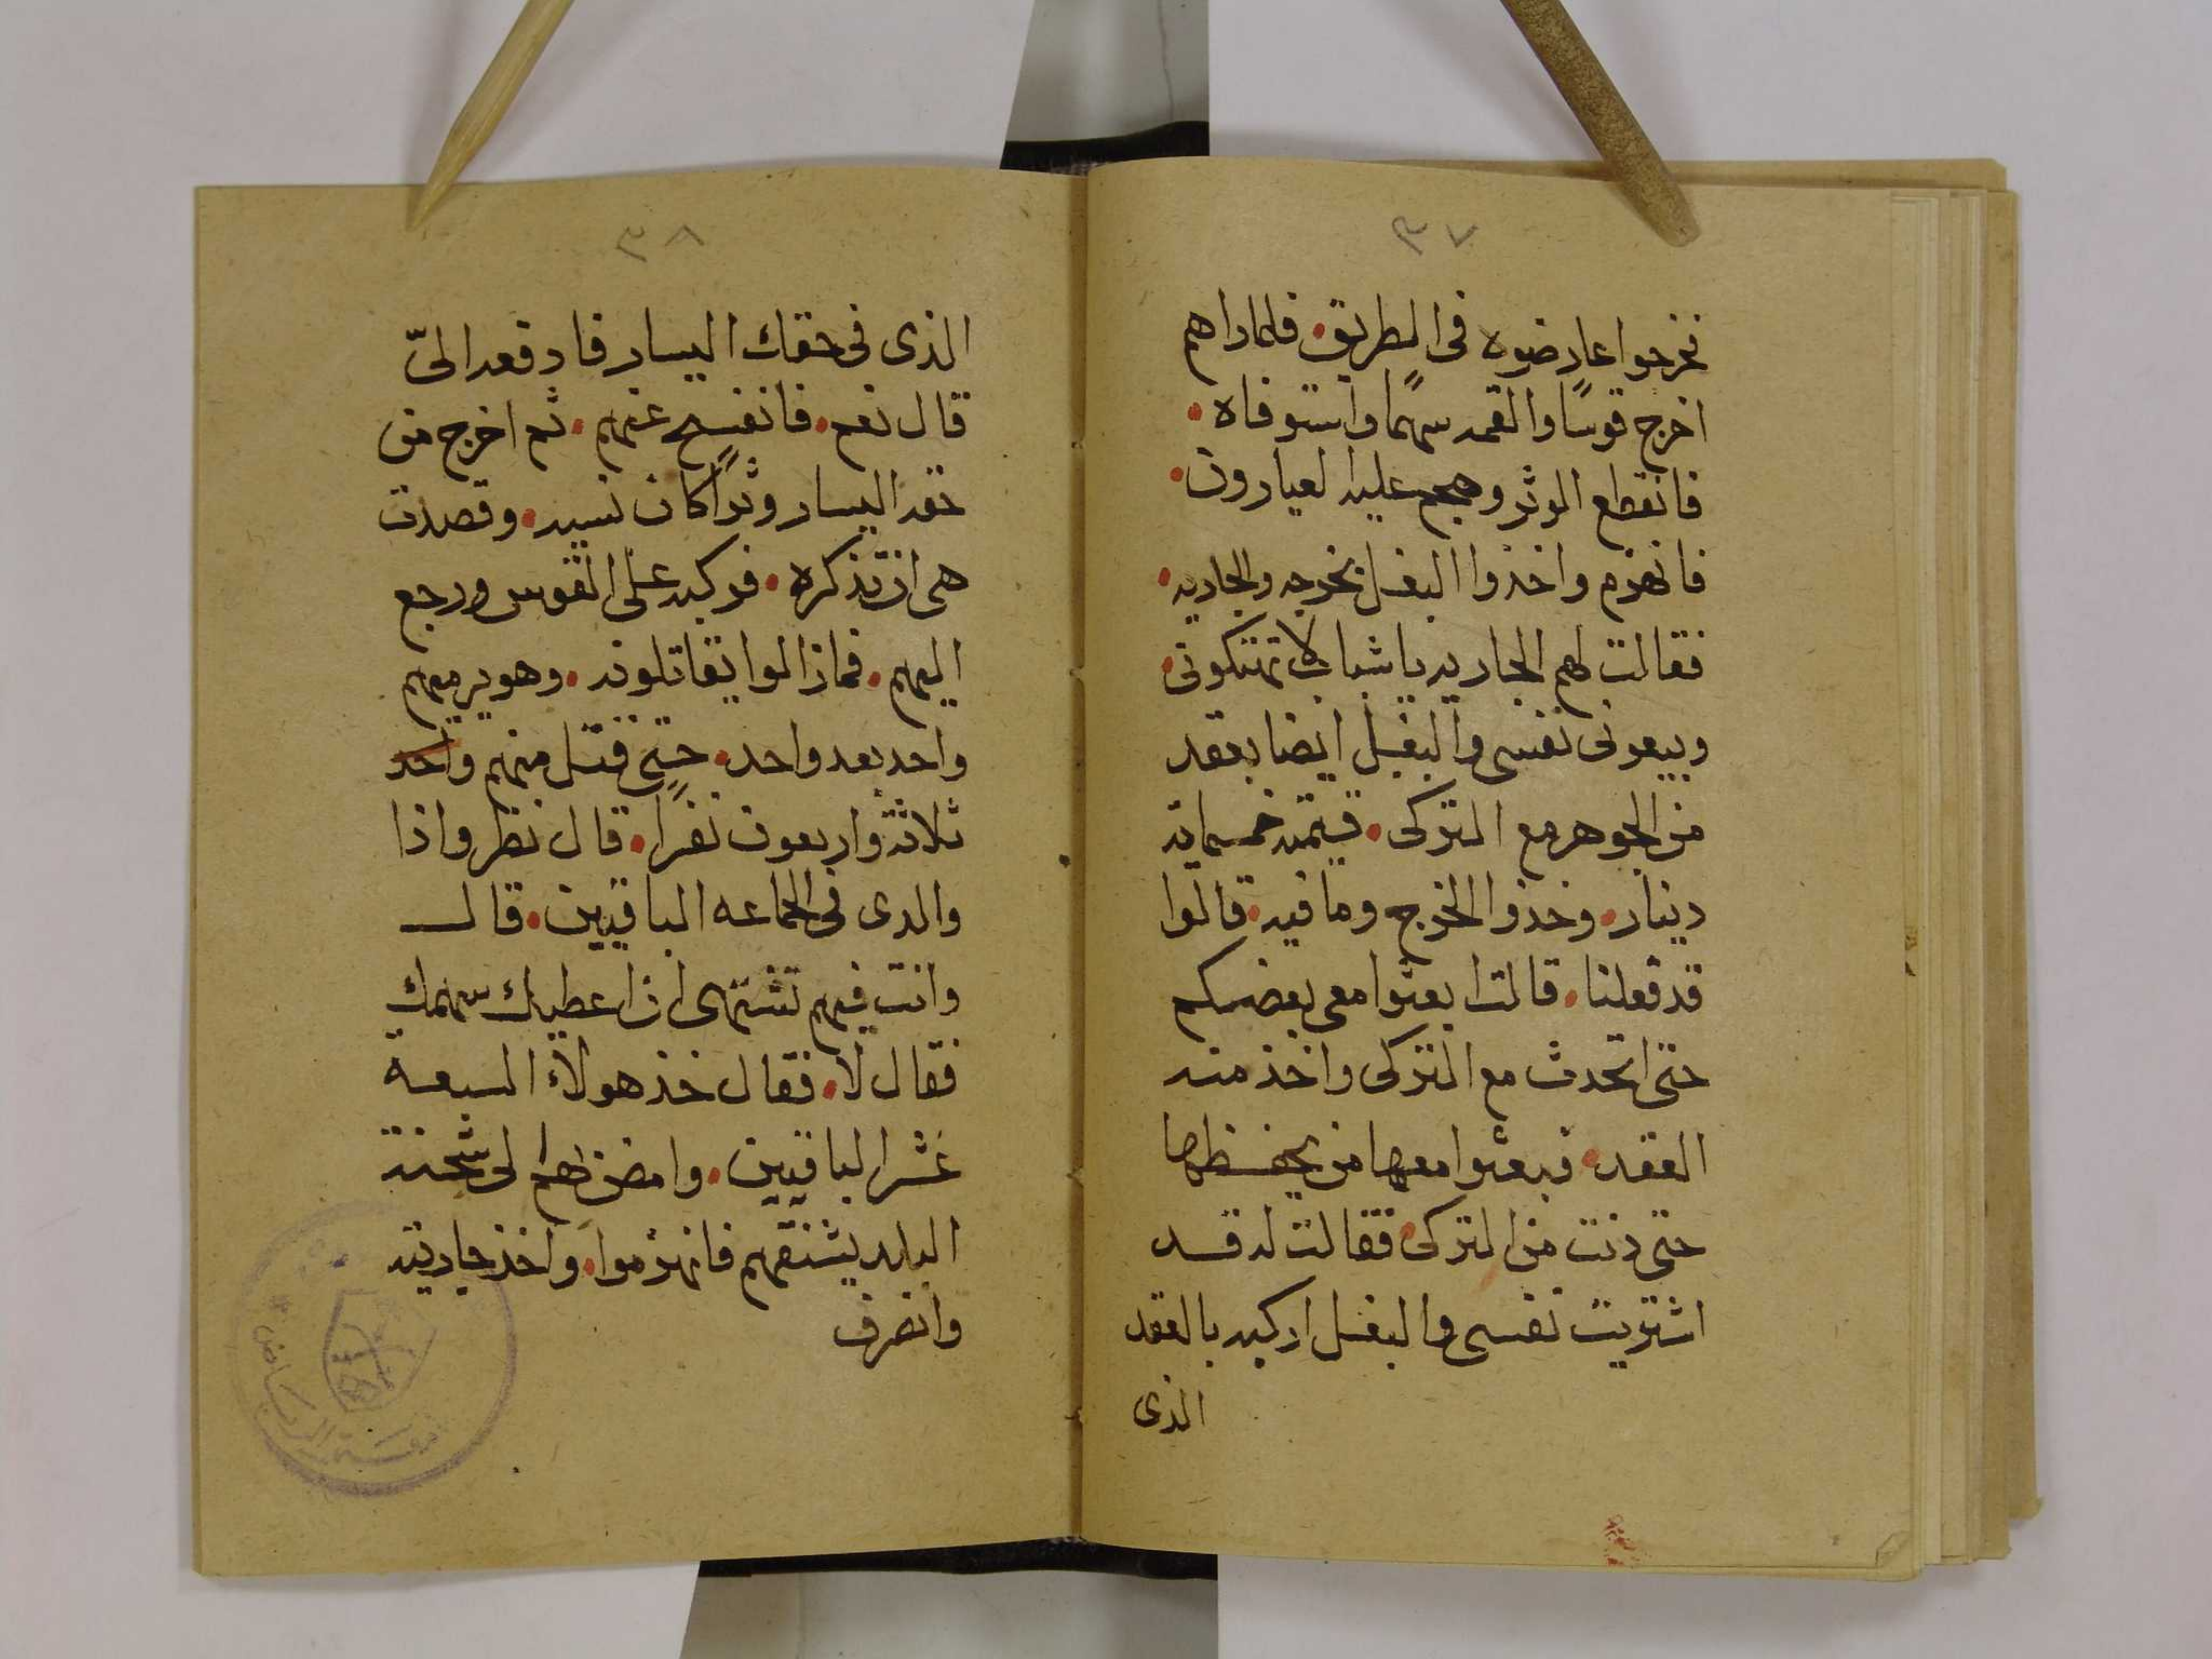 ٣٧
فخرجوا عارضوه فى الطريق. فلما راهم
اخرج قوسًا والقمه سهمًا واستوفاه.
فانقطع الوثر وهجم عليه العيارون.
فانهزم واخذوا البغل بخرجه والجاريه.
فقالت لهم الجاريه يا شباب لا تهتكونى.
وبيعونى نفسى والبغل ايضا بعقد
من الجوهر مع التركى. قيمته خمسماية
دينار. وخذوا الخرج وما فيه. قالوا
قد فعلنا. قالت ابعثوا معى بعضكم
حتى اتحدث مع التركى واخذ منه
العقد. فبعثوا معها من يحفظها
حتى دنت من التركى. فقالت له قد
اشتريت نفسى والبغل اركبه بالعقد
الذى
٣٨
الذى فى خفك اليسار فادفعه الىّ
قال نعم. فانفسح عنهم. ثم اخرج من
خفه اليسار وثرًا كان نسيه. وقصدت
هى ان تذكره. فركبه على القوس ورجع
اليهم. فمازالوا يقاتلونه. وهو يرميهم
واحد بعد واحد. حتى قتل منهم واحد
ثلاثة واربعون نفرًا. قال نظر واذا
والدى فى الجماعه الباقيين. قال
وانت فيهم تشتهى ان اعطيك سهمك
فقال لا. فقال خذ هولاء السبعة
عشر الباقيين. وامض بهم الى شحنة
البلد يشنقهم فانهزموا. واخذ جاريته
وانصرف